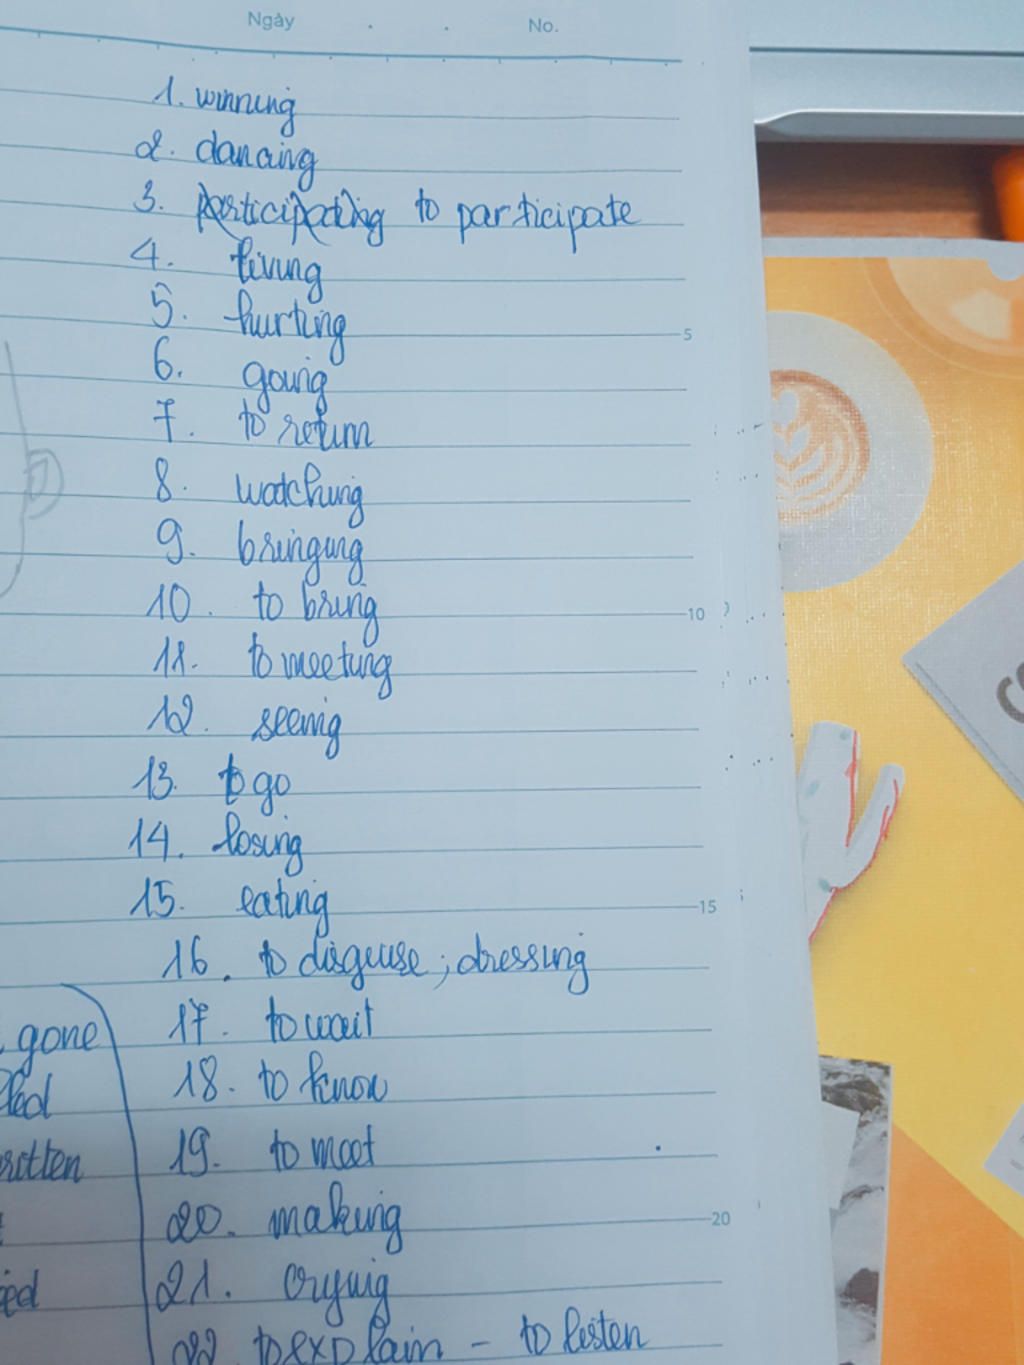 Ngày . . No.
1. winning
2. dancing
3. participating to participate
4. living
5. hurting
5
6. going
7. to return
8. watching
9. bringing
10. to bring
10
11. to meeting
12. seeing
13. to go
14. losing
15. eating
15
16. to disgeuse ; dressing
gone
17. to wait
18. to know
19. to meet
20. making
20
21. crying
22 to explain - to listen